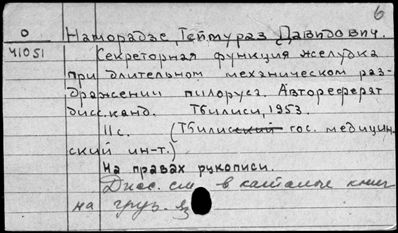 6
О Наморадзе, Теймураз Давидович.
41051 Секреторная функция желудка
при длительном механическом раз-
дражении пилоруса. Автореферат
дисс. канд. Тбилиси, 1953.
11с. (Тбилисский гос. медицин-
ский ин-т.)
На правах рукописи.
Дисс. см. в каталоге книг
на груз. яз